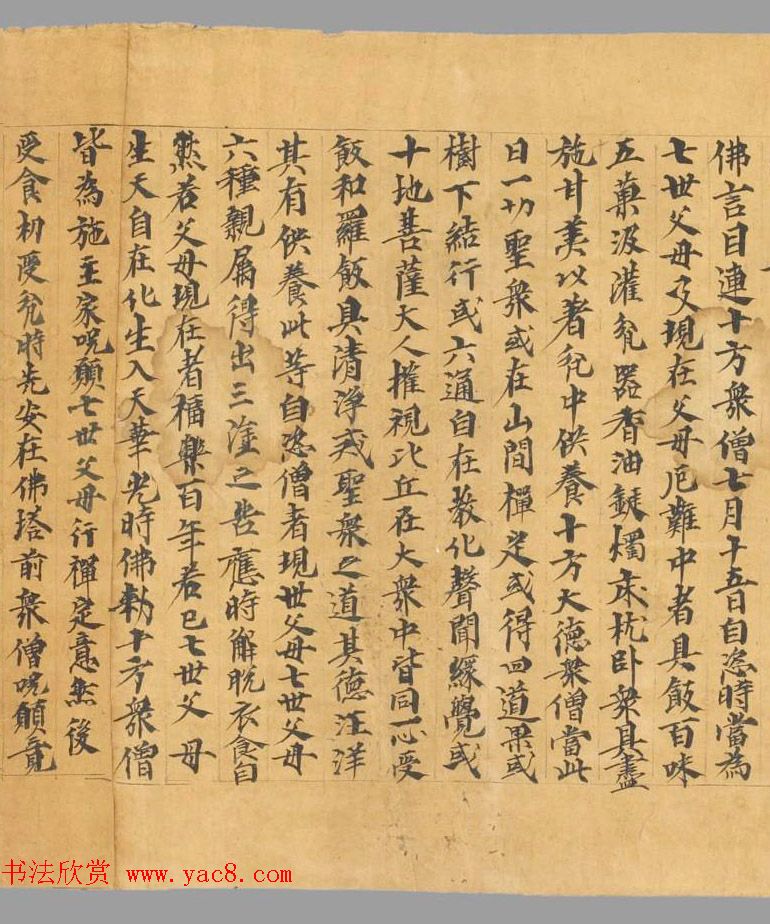 佛言目連十方衆僧七月十五日自恣時當為
七世父母及現在父母厄難中者具飯百味
五菓汲灌瓮器香油鋌燭床枕卧衆具盡
施甘美以著瓮中供養十方大德衆僧當此
日一切聖衆或在山間禪定或得四道果或
樹下経行或六通自在教化聲聞緣覺或
十地菩薩大人摧視比丘在大衆中皆同一心受
飯和羅飯具清淨戒聖衆之道其德汪洋
其有供養此等自恣僧者現世父母七世父母
六種親屬得出三塗之苦應時解脫衣食自
然若父母現在者福樂百年若已七世父母
生天自在化生入天華光時佛勑十方衆僧
皆為施主家呪願七世父母行禪定意然後
受食初受瓮時先安在佛塔前衆僧呪願竟
书法欣赏 www.yac8.com